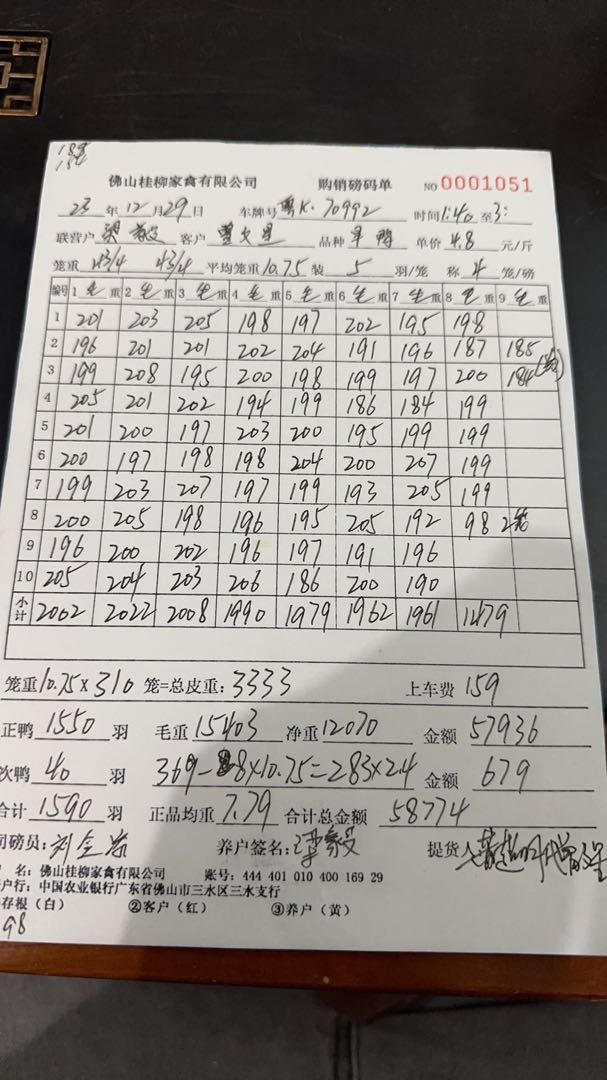 188
184
佛山桂柳家禽有限公司 购销磅码单 NO 0001051
23 年 12 月 29 日 车牌号 粤K·70992 时间 1:40 至 3:
联营户 梁毅 客户 品种 单价 4.8 元/斤
笼重 43/4 43/4 平均笼重 10.75 装 5 羽/笼 称 4 笼/磅
编号 1 毛重 2 毛重 3 毛重 4 毛重 5 毛重 6 毛重 7 毛重 8 毛重 9 毛重
1 201 203 205 198 197 202 195 198
2 196 201 201 202 204 191 196 187 185
3 199 208 195 200 198 199 197 200 184
4 205 201 202 194 199 186 184 199
5 201 200 197 203 200 195 199 199
6 200 197 198 198 204 200 207 199
7 199 203 207 197 199 193 205 199
8 200 205 198 196 195 205 192 98 2笼
9 196 200 202 196 197 191 196
10 205 204 203 206 186 200 190
小计 2002 2022 2008 1990 1979 1962 1961 1479
笼重 10.75×310 笼=总皮重: 3333 上车费 159
正鸭 1550 羽 毛重 15403 净重 12070 金额 57936
次鸭 40 羽 369-8×10.75=283×2.4 金额 679
合计 1590 羽 正品均重 7.79 合计总金额 58774
司磅员: 养户签名: 梁毅 提货人
名: 佛山桂柳家禽有限公司 账号: 444 401 010 400 169 29
户行: 中国农业银行广东省佛山市三水区三水支行
存根（白） ②客户（红） ③养户（黄）
98